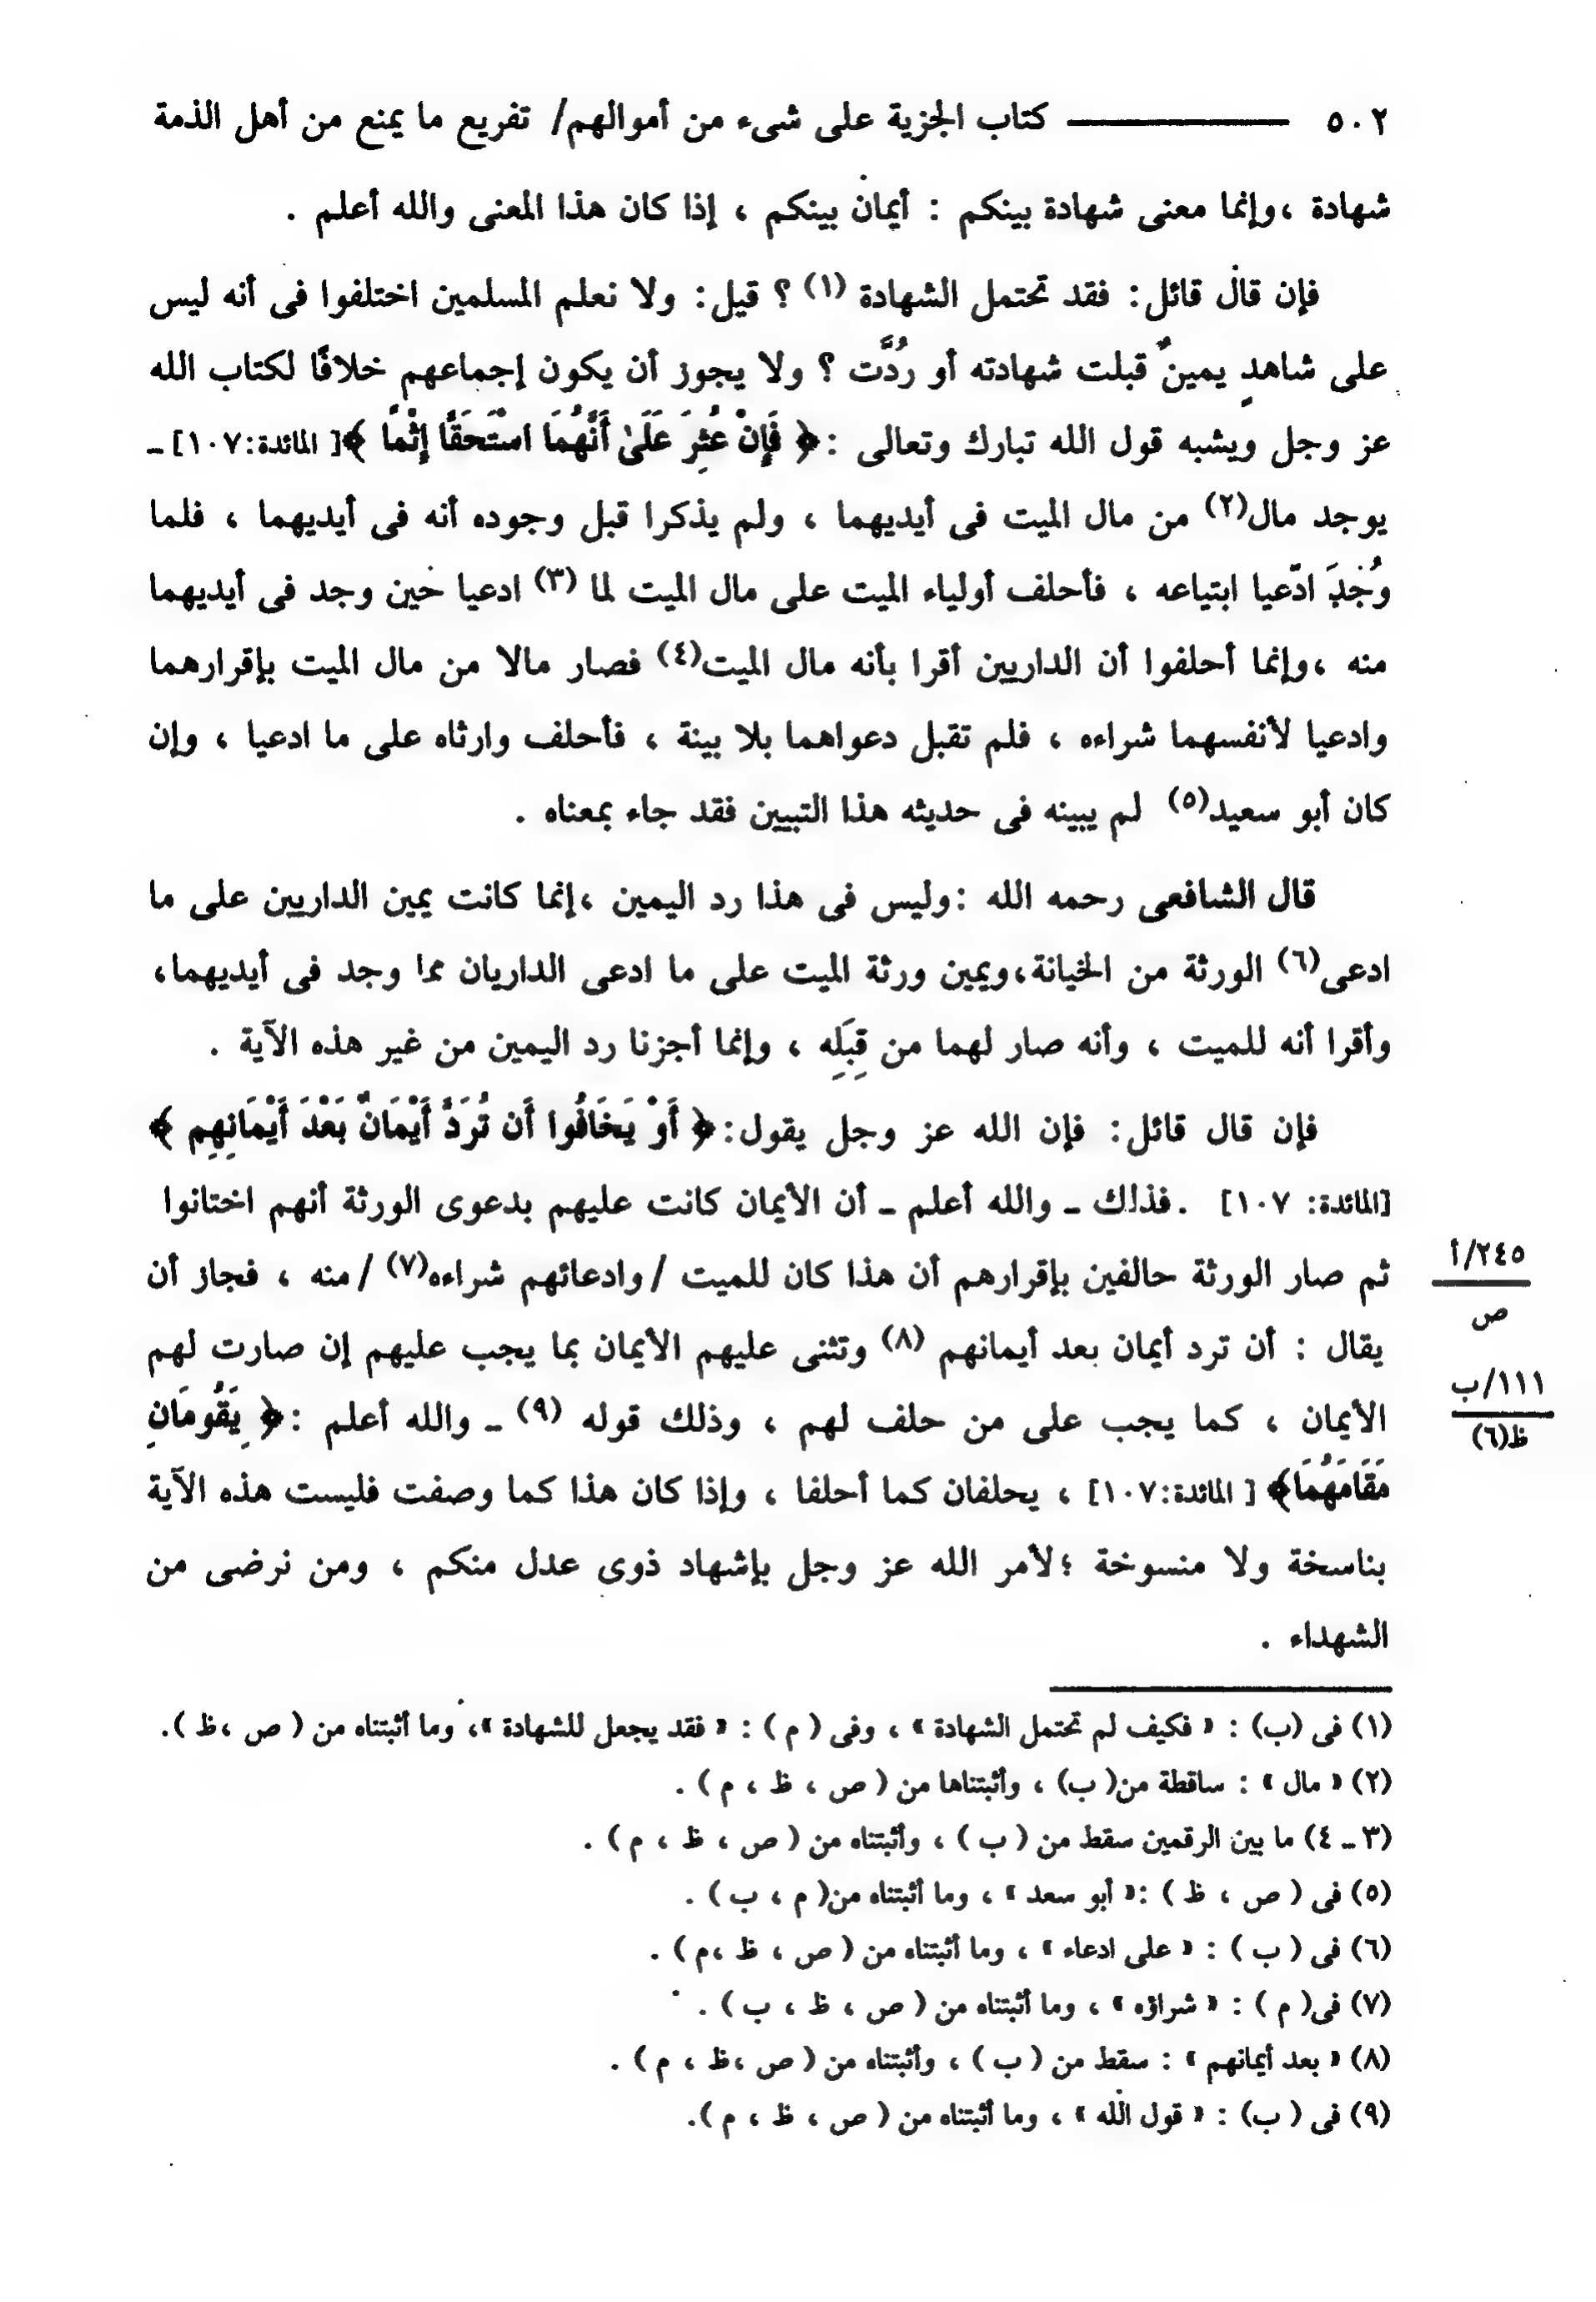 ٥٠٢ ــــــــــــــــ كتاب الجزية على شىء من أموالهم/ تفريع ما يمنع من أهل الذمة
شهادة ،وإنما معنى شهادة بينكم : أيمان بينكم ، إذا كان هذا المعنى والله أعلم .
فإن قال قائل: فقد تحتمل الشهادة (١) ؟ قيل: ولا نعلم المسلمين اختلفوا فى أنه ليس
على شاهدٍ يمينٌ قبلت شهادته أو رُدَّت ؟ ولا يجوز أن يكون إجماعهم خلافًا لكتاب الله
عز وجل ويشبه قول الله تبارك وتعالى :﴿ فَإِنْ عُثِرَ عَلَىٰ أَنَّهُمَا اسْتَحَقَّا إِثْمًا ﴾[ المائدة:١٠٧] ـ
يوجد مال(٢) من مال الميت فى أيديهما ، ولم يذكرا قبل وجوده أنه فى أيديهما ، فلما
وُجِدَ ادّعيا ابتياعه ، فأحلف أولياء الميت على مال الميت لما (٣) ادعيا حين وجد فى أيديهما
منه ،وإنما أحلفوا أن الداريين أقرا بأنه مال الميت(٤) فصار مالا من مال الميت بإقرارهما
وادعيا لأنفسهما شراءه ، فلم تقبل دعواهما بلا بينة ، فأحلف وارثاه على ما ادعيا ، وإن
كان أبو سعيد(٥) لم يبينه فى حديثه هذا التبيين فقد جاء بمعناه .
قال الشافعى رحمه الله :وليس فى هذا رد اليمين ،إنما كانت يمين الداريين على ما
ادعى(٦) الورثة من الخيانة،ويمين ورثة الميت على ما ادعى الداريان مما وجد فى أيديهما،
وأقرا أنه للميت ، وأنه صار لهما من قِبَلِه ، وإنما أجزنا رد اليمين من غير هذه الآية .
فإن قال قائل: فإن الله عز وجل يقول:﴿ أَوْ يَخَافُوا أَن تُرَدَّ أَيْمَانٌ بَعْدَ أَيْمَانِهِم ﴾
[المائدة: ١٠٧] .فذلك ـ والله أعلم ـ أن الأيمان كانت عليهم بدعوى الورثة أنهم اختانوا
ثم صار الورثة حالفين بإقرارهم أن هذا كان للميت /وادعائهم شراءه(٧) /منه ، فجاز أن
٢٤٥/أ
ص
يقال : أن ترد أيمان بعد أيمانهم (٨) وتثنى عليهم الأيمان بما يجب عليهم إن صارت لهم
١١١/ب
ظ(٦)
الأيمان ، كما يجب على من حلف لهم ، وذلك قوله (٩) ـ والله أعلم :﴿ يَقُومَانِ
مَقَامَهُمَا﴾ [ المائدة:١٠٧] ، يحلفان كما أحلفا ، وإذا كان هذا كما وصفت فليست هذه الآية
بناسخة ولا منسوخة ؛لأمر الله عز وجل بإشهاد ذوى عدل منكم ، ومن نرضى من
الشهداء .
(١) فى (ب) : « فكيف لم تحتمل الشهادة » ، وفى ( م ) : « فقد يجعل للشهادة »، وما أثبتناه من ( ص ،ظ ).
(٢) « مال » : ساقطة من( ب) ، وأثبتناها من ( ص ، ظ ، م ) .
(٣ ـ ٤) ما بين الرقمين سقط من ( ب ) ، وأثبتناه من ( ص ، ظ ، م ) .
(٥) فى ( ص ، ظ ) :« أبو سعد » ، وما أثبتناه من( م ، ب ) .
(٦) فى ( ب ) : « على ادعاء » ، وما أثبتناه من ( ص ، ظ ،م ) .
(٧) فى( م ) : « شراؤه » ، وما أثبتناه من ( ص ، ظ ، ب ) .
(٨) « بعد أيمانهم » : سقط من ( ب ) ، وأثبتناه من ( ص ،ظ ، م ) .
(٩) فى ( ب) : « قول الله » ، وما أثبتناه من ( ص ، ظ ، م ).